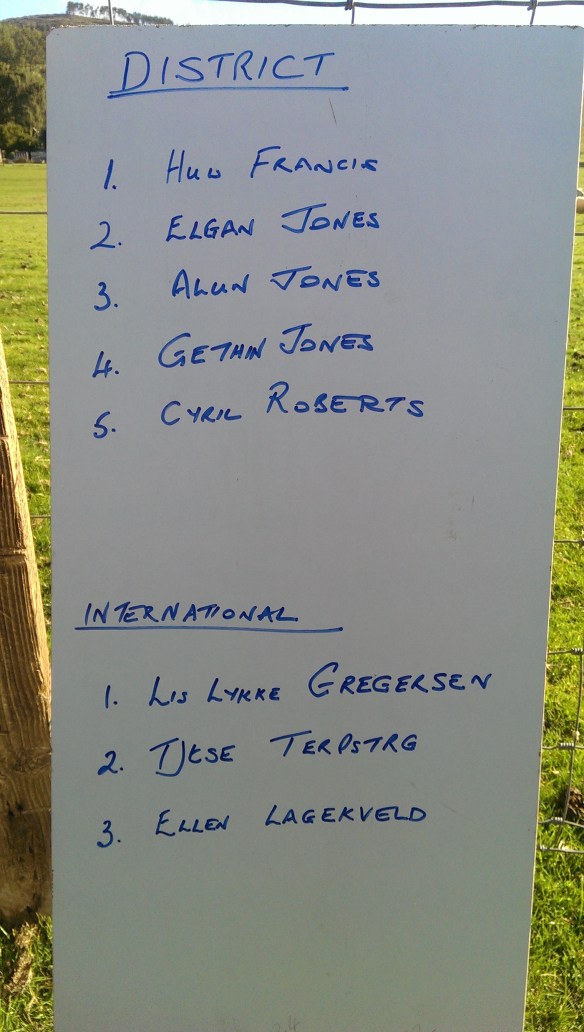 DISTRICT
1. HUW FRANCIS
2. ELGAN JONES
3. ALUN JONES
4. GETHIN JONES
5. CYRIL ROBERTS
INTERNATIONAL
1. LIS LYKKE GREGERSEN
2. TJESE TERPSTRG
3. ELLEN LAGEKVELD